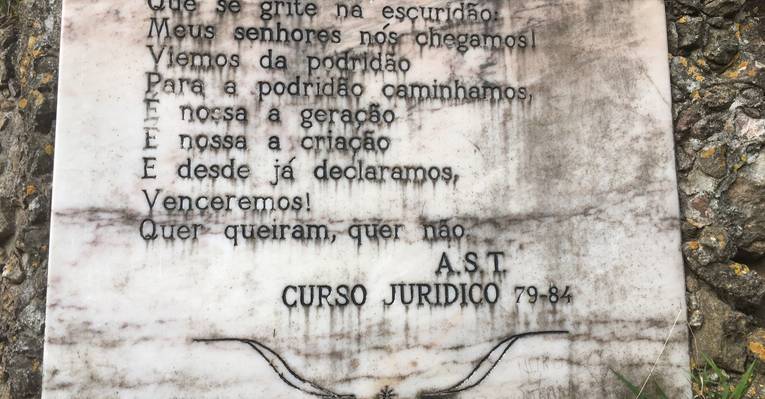 Que se grite na escuridão:
Meus senhores nós chegamos!
Viemos da podridão
Para a podridão caminhamos,
É nossa a geração
E nossa a criação
E desde já declaramos,
Venceremos!
Quer queiram, quer não.
A.S.T.
CURSO JURIDICO 79-84